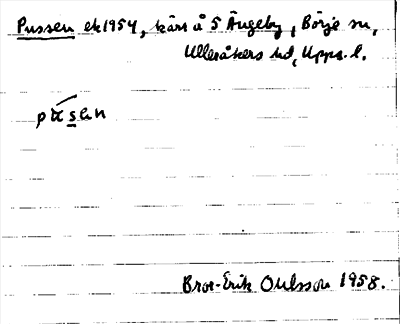 Pussen ek1954, kärr å S Ängeby, Börje sn,
Ulleråkers hd, Upps. l.
Bror-Erik Ohlsson 1958.